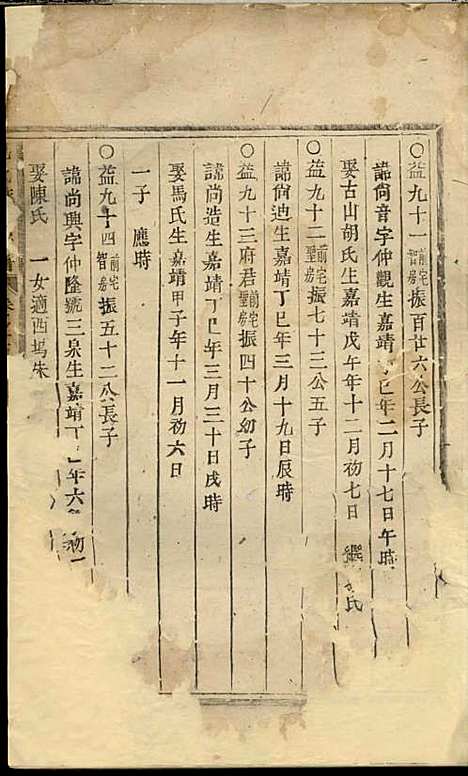 ○益九十一前宅智房振百廿六公長子
諱尚音字仲觀生嘉靖丁巳年二月十七日午時
娶古山胡氏生嘉靖戊午年十二月初七日 繼 氏
○益九十二前宅聖房振七十三公五子
諱尚迪生嘉靖丁巳年三月十九日辰時
○益九十三府君前宅聖房振四十公幼子
諱尚造生嘉靖丁巳年三月三十日戌時
娶馬氏生嘉靖甲子年十一月初六日
一子 應時
○益九十四前宅智房振五十二公長子
諱尚興字仲隆號三泉生嘉靖丁 年六 初一
娶陳氏 一女適西塢朱